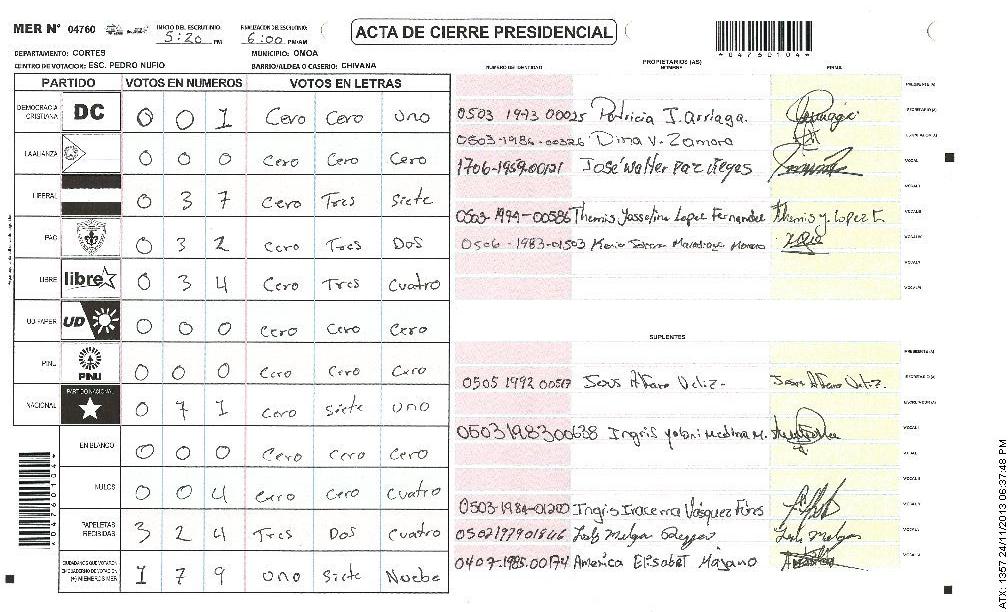 MER N° 04760 INICIO DEL ESCRUTINIO: 5:20 PM FINALIZACION DEL ESCRUTINIO: 6:00 PM/AM
ACTA DE CIERRE PRESIDENCIAL
04760104
DEPARTAMENTO: CORTES MUNICIPIO: OMOA
CENTRO DE VOTACION: ESC. PEDRO NUFIO BARRIO/ALDEA O CASERIO: CHIVANA
PARTIDO VOTOS EN NUMEROS VOTOS EN LETRAS
DEMOCRACIA CRISTIANA DC 0 0 1 Cero Cero Uno
LA ALIANZA 0 0 0 Cero Cero Cero
LIBERAL 0 3 7 Cero Tres Siete
PAC 0 3 2 Cero Tres Dos
LIBRE libre 0 3 4 Cero Tres Cuatro
UD-FAPER UD 0 0 0 Cero Cero Cero
PINU PINU 0 0 0 Cero Cero Cero
NACIONAL PARTIDO NACIONAL 0 7 1 Cero Siete Uno
EN BLANCO 0 0 0 Cero Cero Cero
NULOS 0 0 4 Cero Cero Cuatro
PAPELETAS RECIBIDAS 3 2 4 Tres Dos Cuatro
CIUDADANOS QUE VOTARON EN CUADERNO DE VOTACION (+) MIEMBROS MER 1 7 9 Uno Siete Nuebe
04760104
PROPIETARIOS (AS)
NUMERO DE IDENTIDAD NOMBRE FIRMA
PRESIDENTE (A)
0503 1973 00025 Patricia J. Arriaga. SECRETARIO (A)
0503-1986-00326 Dina V. Zamora ESCRUTADOR (A)
1706-1959-00121 José Walter Paz VOCAL
0503-1994-00586 Themis Yosselin Lopez Fernandez Themis y. Lopez F.
0506-1983-01503
SUPLENTES
PRESIDENTE (A)
0505 1992 00517 SECRETARIO (A)
ESCRUTADOR (A)
0503198300638 Ingris yolani medina M.
0503-1984-01200 Ingris Iracema Vásquez
0502197901846 Melgar
0407-1985-00174 América Elisabet
ATX: 1357 24/11/2013 06:37:48 PM